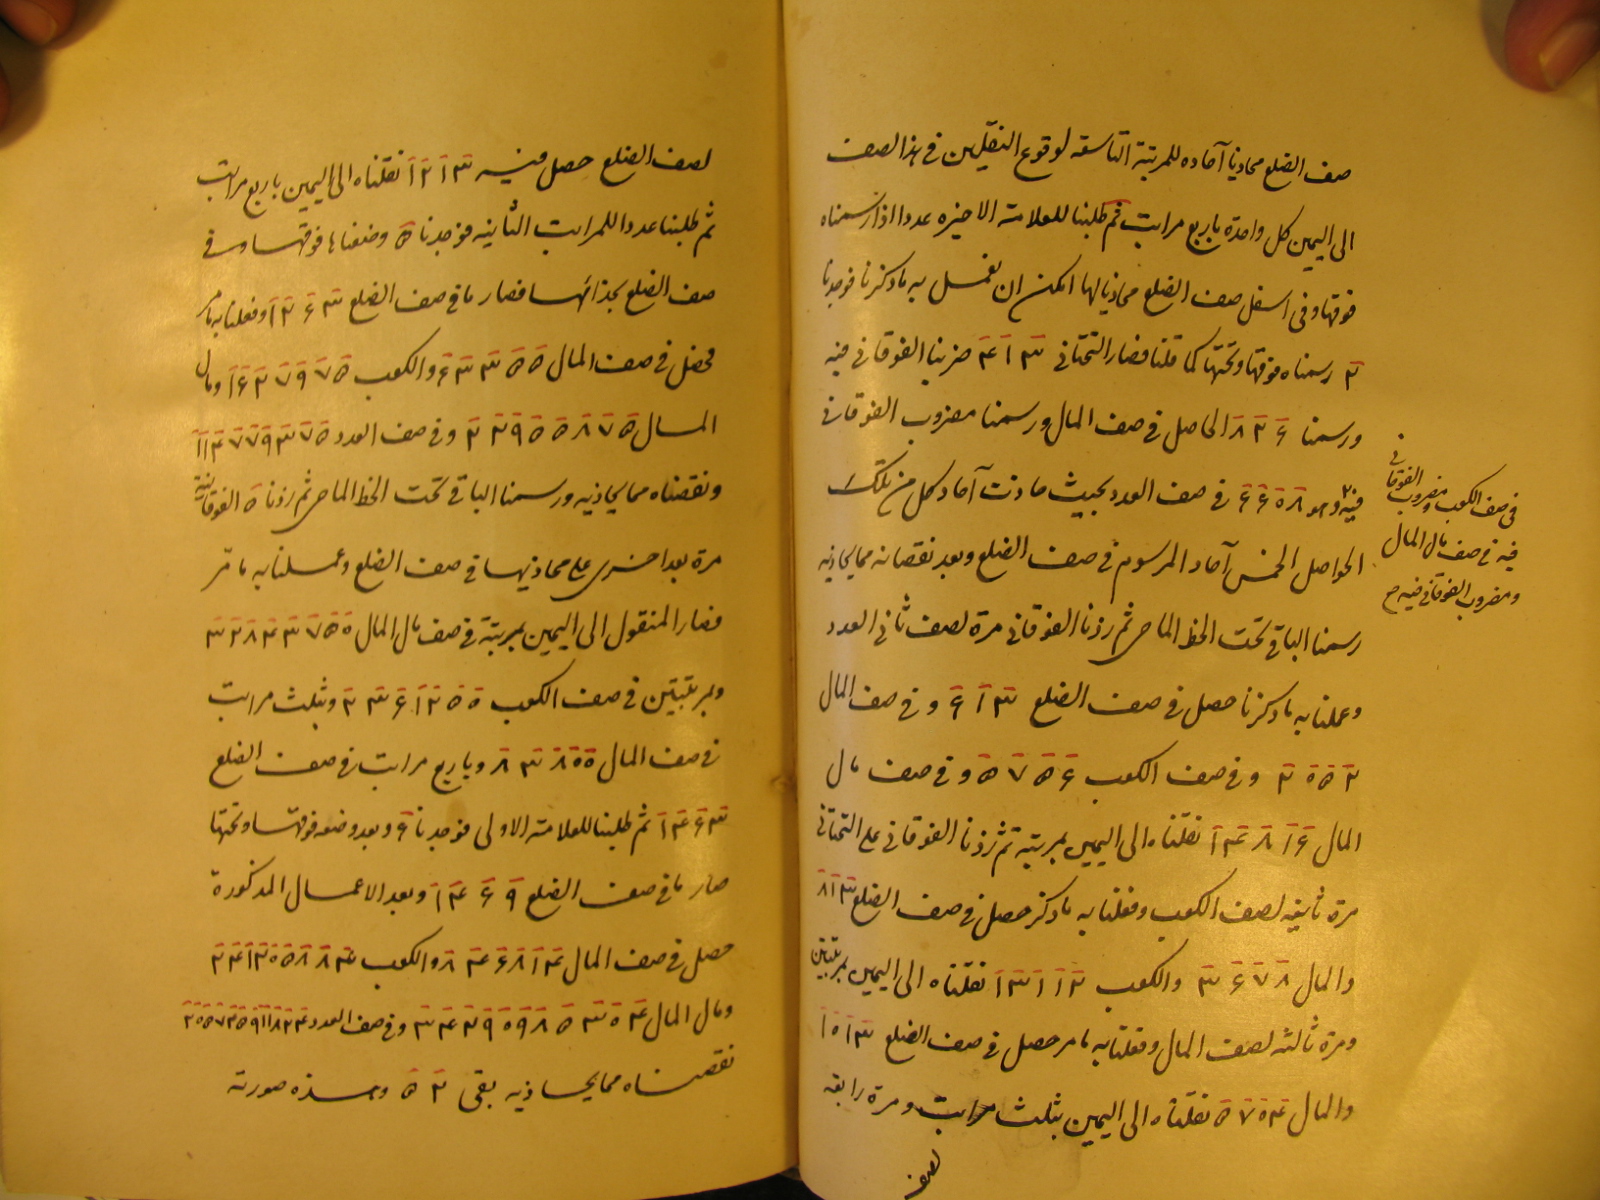 صف الضلع محاذيا آحاده للمرتبة التاسعه لوقوع النقلين فى هذا الصف
الى اليمين كل واحدة باربع مراتب ثم طلبنا للعلامة الاخيره عددا اذا رسمناه
فوقها وفى اسفل صف الضلع محاذيا لها امكن ان نعمل به ما ذكرنا فوجدنا
٢ رسمناه فوقها وتحتها كما قلنا فصار التحتانى ٤١٣ ضربنا الفوقانى فيه
ورسمنا ٨٢٦ الحاصل فى صف المال ورسمنا مضروب الفوقانى
فيه وهو ٦٦٠٨ فى صف العدد بحيث حاذت آحاد كل من تلك
الحواصل الخمس آحاد المرسوم فى صف الضلع وبعد نقصانه مما يحاذيه
رسمنا الباقى تحت الخط الماحى ثم زدنا الفوقانى مرة لصف ثانى العدد
وعملنا به ما ذكرنا حصل فى صف الضلع ٦١٣ و فى صف المال
٢٠٥٢ وفى صف الكعب ٥٧٥٦ وفى صف مال
المال ١٤٨١٦ نقلناه الى اليمين بمرتبة ثم زدنا الفوقانى على التحتانى
مرة ثانيه لصف الكعب وفعلنا به ما ذكر حصل فى صف الضلع ٨١٣
والمال ٣٦٧٨ والكعب ١٣١١٢ نقلناه الى اليمين بمرتبتين
ومرة ثالثه لصف المال وفعلنا به ما مر حصل فى صف الضلع ١٠١٣
والمال ٥٧٠٤ نقلناه الى اليمين بثلث مراتب ومرة رابعه
لصف
فى صف الكعب ومضروب الفوقانى
فيه فى صف مال المال
ومضروب الفوقانى فيه صح
لصف الضلع حصل فيه ١٢١٣ نقلناه الى اليمين باربع مراتب
ثم طلبنا عددا للمراتب الثانيه فوجدنا ٥ وضعنا ها فوقها وفى
صف الضلع بحذائها فصار ما فى صف الضلع ١٢٦٣ وفعلنا به ما مر
فحصل فى صف المال ٦٣٣٥٥ والكعب ١٦٢٧٩٧٥ ومال
المال ٢٢٩٥٥٨٧٥ وفى صف العدد ١١٤٧٧٩٣٧٥
ونقصناه مما يحاذيه ورسمنا الباقى تحت الخط الماحى ثم زدنا ٥ الفوقانية
مرة بعد اخرى على محاذيها فى صف الضلع وعملنا به ما مر
فصار المنقول الى اليمين بمرتبة فى صف مال المال ٣٢٨٤٣٧٥٠
وبمرتبتين فى صف الكعب ٢٣٦١٢٥٠ وبثلث مراتب
فى صف المال ٨٣٨٠٠ وباربع مراتب فى صف الضلع
١٤٦٣ ثم طلبنا للعلامة الاولى فوجدنا ٦ وبعد وضعه فوقها وتحتها
صار ما فى صف الضلع ١٤٦٩ وبعد الاعمال المذكورة
حصل فى صف المال ٨٤٦٨١٤ والكعب ٢٤١٢٠٥٨٨٤
ومال المال ٣٤٢٩٠٩٨٥٣٠٤ وفى صف العدد ٢٠٥٧٤٥٩١١٨٢٤
نقصناه مما يحاذيه بقى ٥٢ وهذه صورته